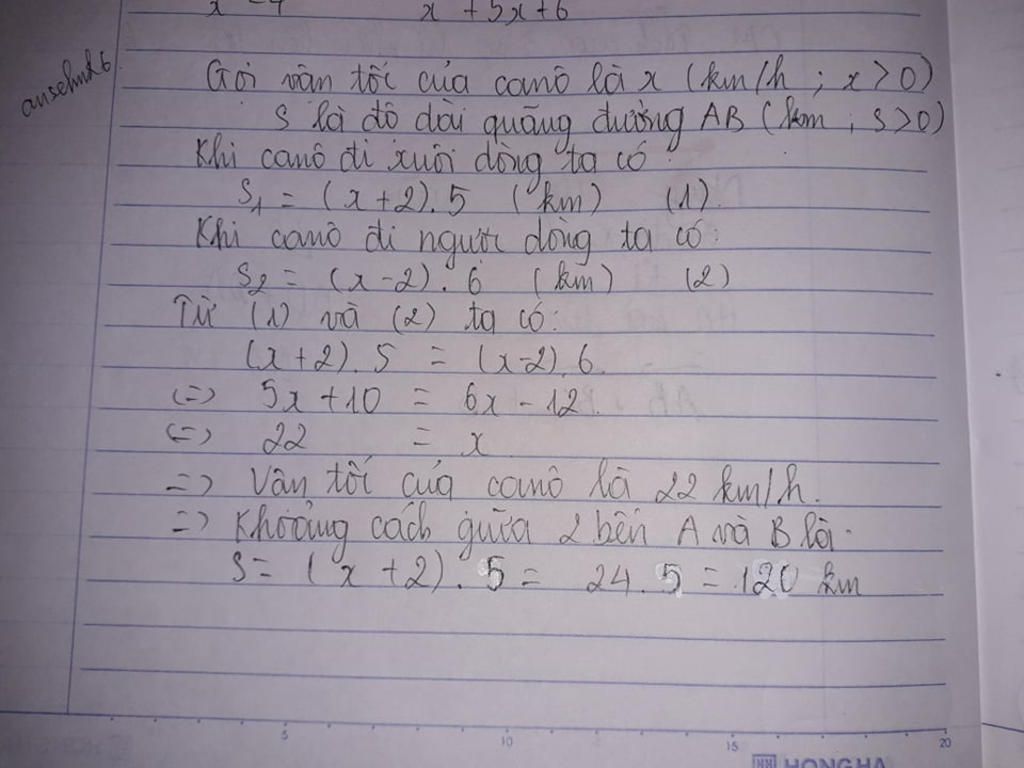 x + 5x + 6
anselmd6
Gọi vận tốc của canô là x (km/h ; x > 0)
S là độ dài quãng đường AB (km ; s > 0)
Khi canô đi xuôi dòng ta có:
S₁ = (x + 2) . 5 (km) (1)
Khi canô đi ngược dòng ta có:
S₂ = (x - 2) . 6 (km) (2)
Từ (1) và (2) ta có:
(x + 2) . 5 = (x - 2) . 6
<=> 5x + 10 = 6x - 12
<=> 22 = x
=> Vận tốc của canô là 22 km/h.
=> Khoảng cách giữa 2 bến A và B là:
S = (x + 2) . 5 = 24 . 5 = 120 km
5 10 15 20
HH HONG HA